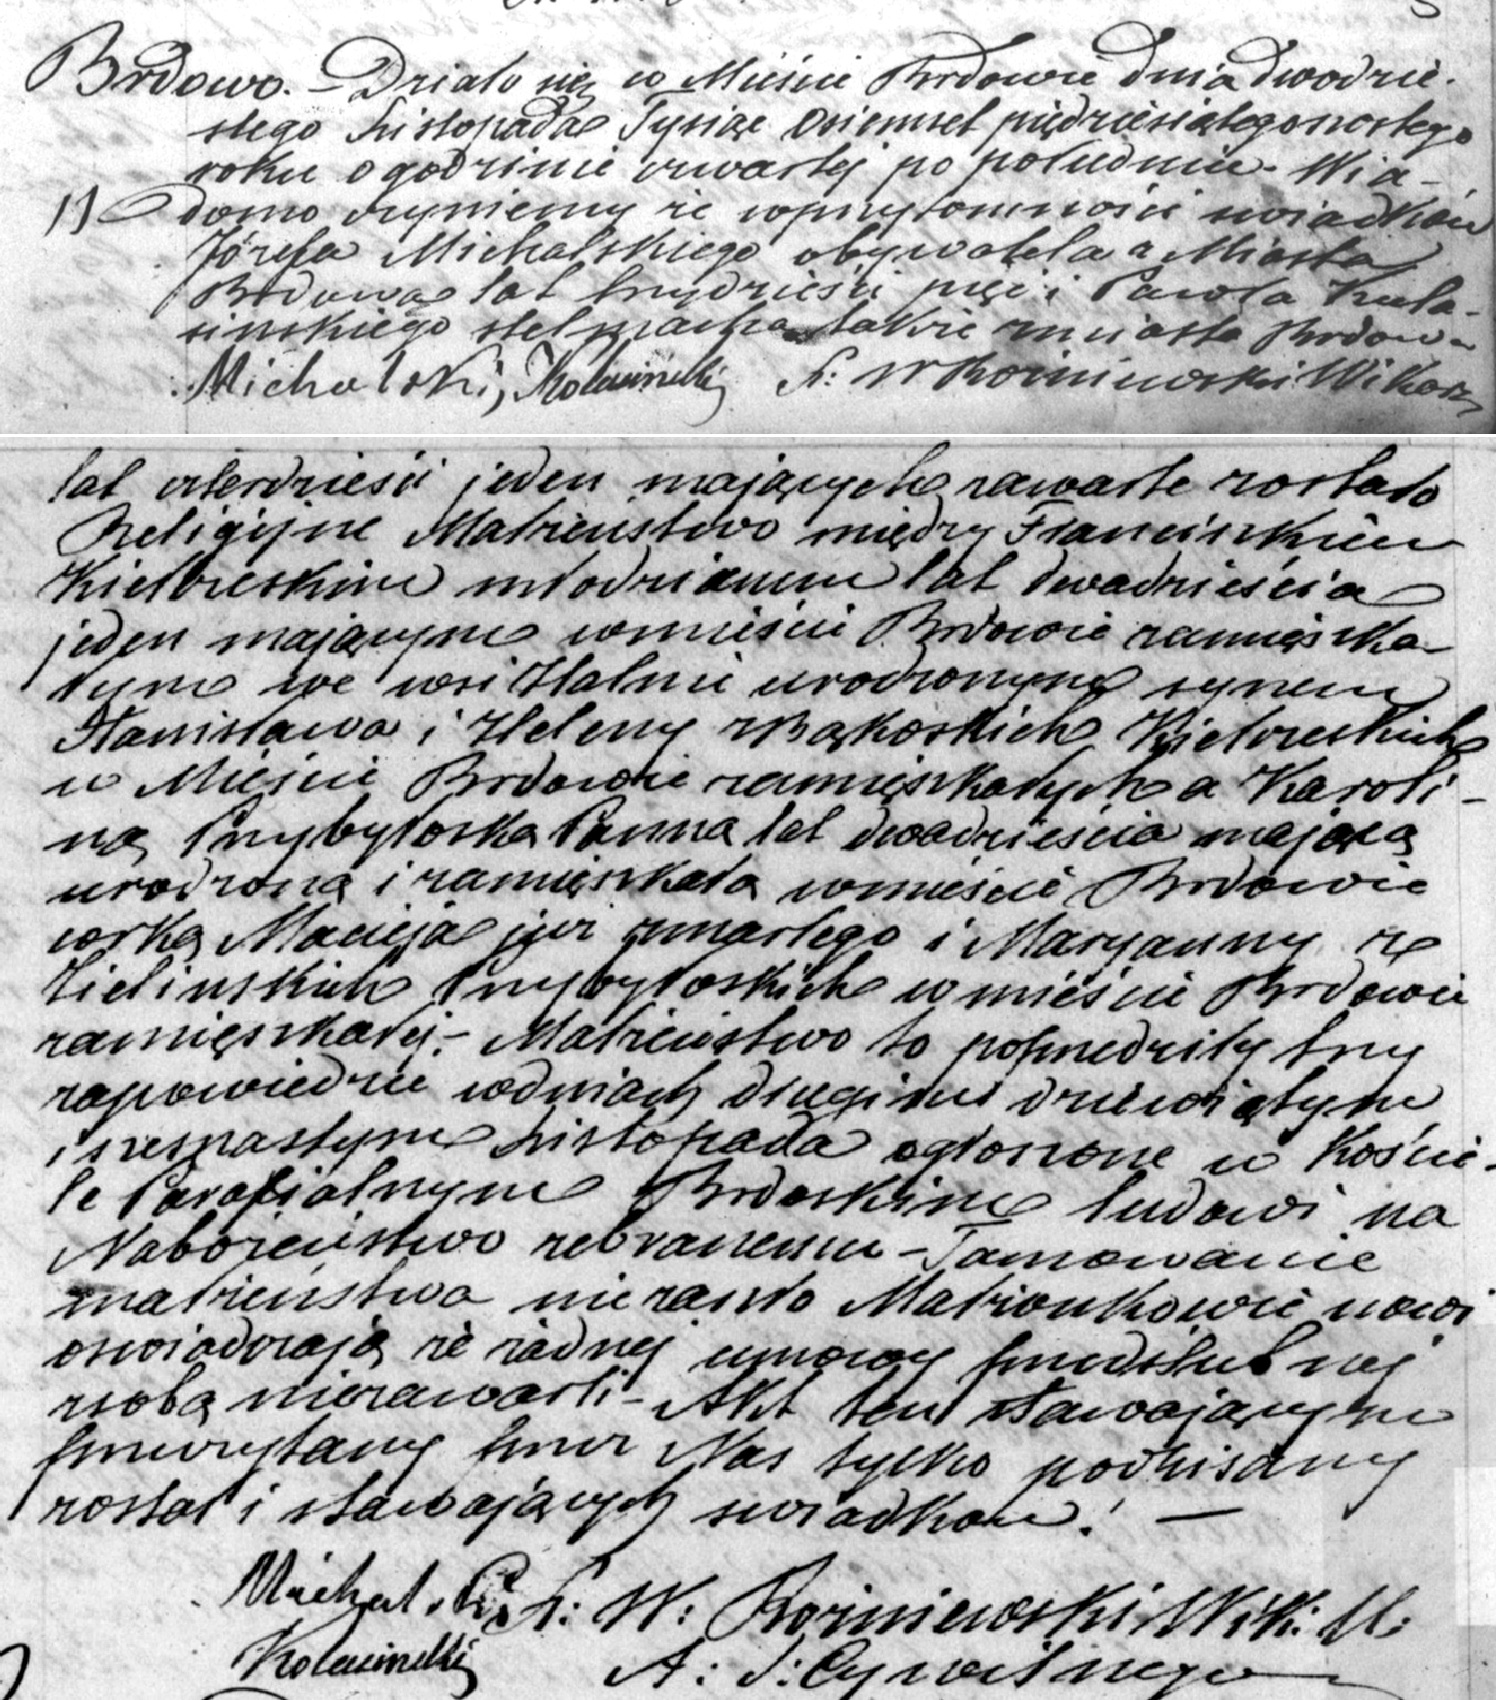 Brdowo. – Działo się w Mieście Brdowie dnia dwodzie-
stego Listopada Tysiąc Osiemset piędziesiątegoszostego
roku o godzinie czwartej po południu. Wia-
11 domo czyniemy że wprzytomności swiadków
Józefa Michalskiego obywatela z Miasta
Brdowa lat trzydzieści pięć i Pawła Kula-
sinskiego stelmacha także zmiasta Brdowa
Michalski, Kolasinski X: W Rożniewski Wikary
lat czterdzieści jeden mających zawarte zostało
Religijne Małżeństwo między Franciszkiem
Kiełbeskim młodzianem lat dwadzieścia
jeden mającym wmieście Brdowie zamięszka-
łym we wsi urodzonym synem
Stanisława i Heleny zBąkoskich
w Mieście Brdowie zamięszkałych a Karoli-
ną Przybyłoską Panną lat dwadzieścia mającą
urodzoną i zamięszkałą wmieście Brdowie
corką Macieja już zmarłego i Maryanny ze
Zielinskich Przybyłoskich wmieście Brdowie
zamięszkałej. – Małżeństwo to poprzedziły trzy
zapowiedzie wdniach drugim dziewiątym
i szesnastym Listopada ogłoszone w Koście-
le Parafialnym Brdoskim ludowi na
Nabożeństwo zebranemu – Tamowanie
małżeństwa niezaszło Małżonkowie nowi
oswiadczają że żadnej umowy przedslubnej
zsobą niezawarli – Akt ten stawającym
przeczytany przez Nas tylko podpisany
został i stawających swiadkow. –
Michalski X: W: Rożniewski Wik: U:
Kolasinski A: S: Cywilnego